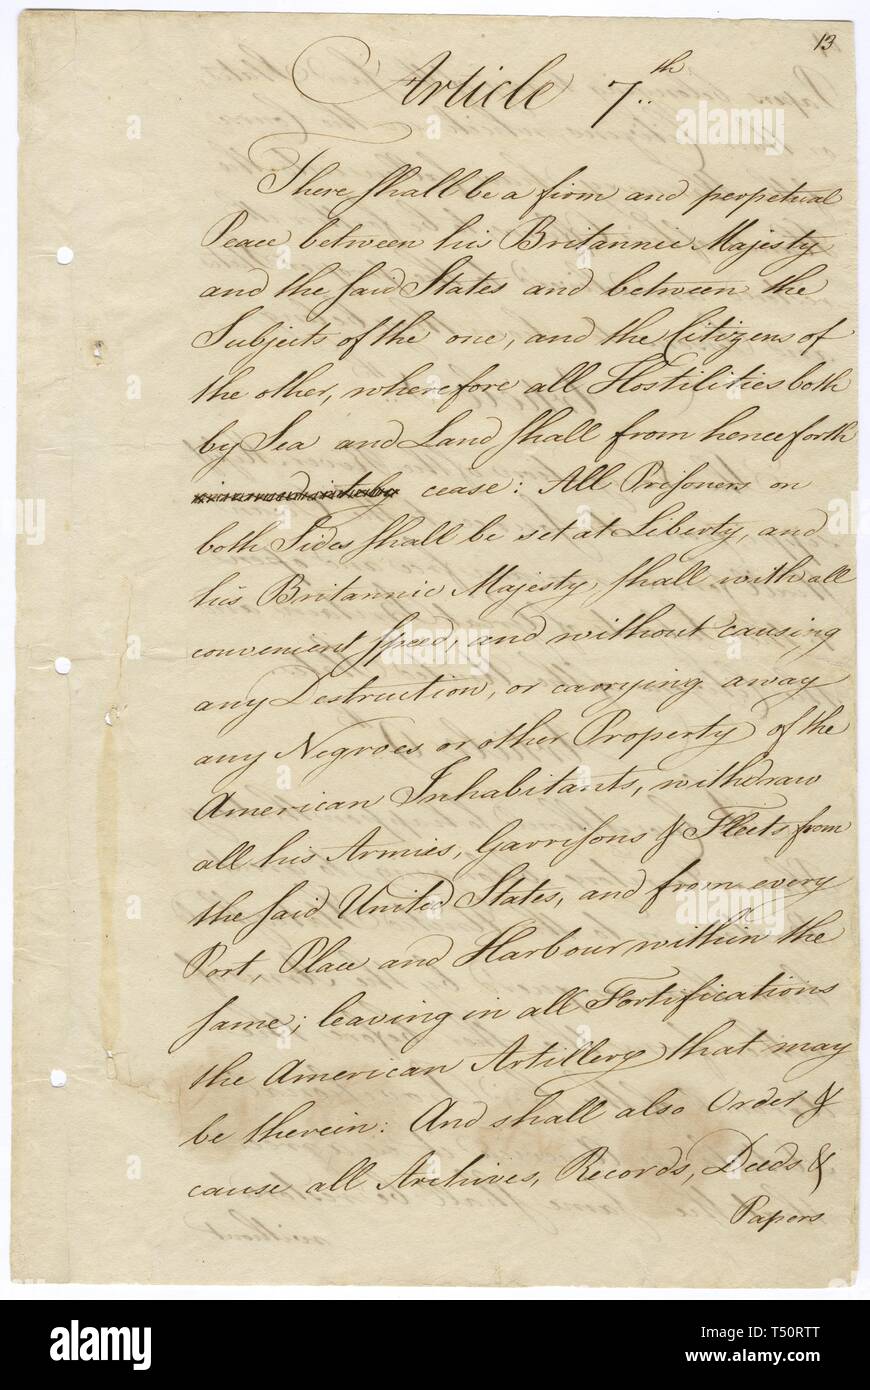 13
Article 7..th
There shall be a firm and perpetual
Peace between his Britannic Majesty
and the said States and between the
Subjects of the one, and the Citizens of
the other, wherefore all Hostilities both
by Sea and Land shall from henceforth
cease: All Prisoners on
both Sides shall be set at Liberty, and
his Britannic Majesty, shall with all
convenient speed, and without causing
any Destruction, or carrying away
any Negroes or other Property of the
American Inhabitants, withdraw
all his Armies, Garrisons & Fleets from
the said United States, and from every
Port, Place and Harbour within the
same; leaving in all Fortifications
the American Artillery that may
be therein: And shall also Order &
cause all Archives, Records, Deeds &
Papers
alamy
Image ID: T50RTT
www.alamy.com